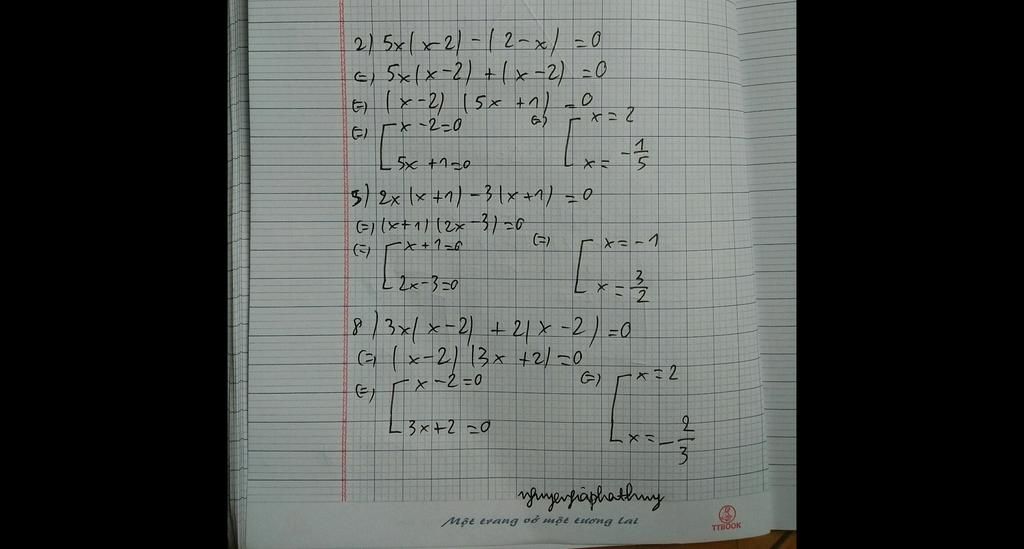 2) 5x(x-2) - (2-x) = 0
(=) 5x(x-2) + (x-2) = 0
(=) (x-2) (5x+1) = 0
(=) [ x-2=0 (=) [ x=2
5x+1=0 x= -1/5
5) 2x(x+1) - 3(x+1) = 0
(=) (x+1)(2x-3)=0
(=) [ x+1=0 (=) [ x=-1
2x-3=0 x=3/2
8) 3x(x-2) + 2(x-2) = 0
(=) (x-2) (3x+2)=0
(=) [ x-2=0 (=) [ x=2
3x+2=0 x=-2/3
nguyengiaphathuy
Một trang vở một tương lai
TTBOOK